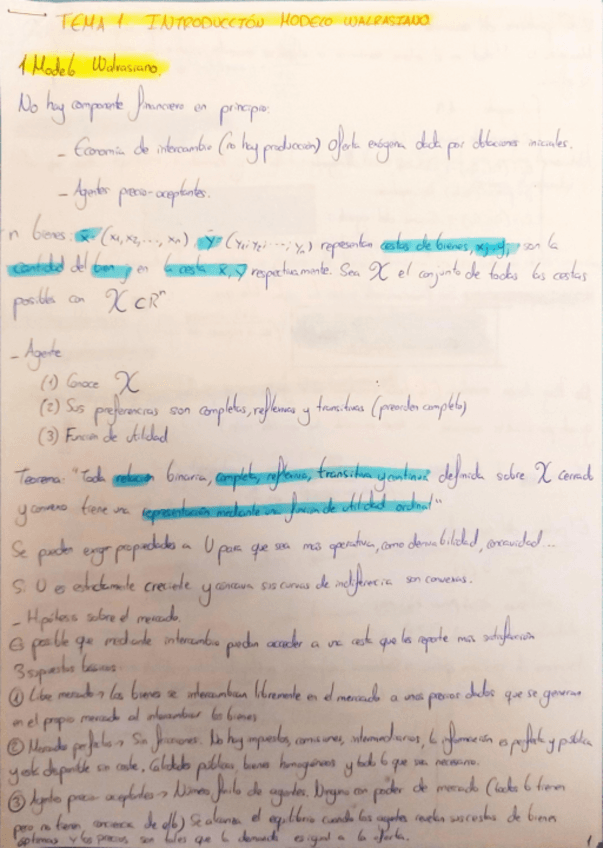 TEMA 1. INTRODUCCIÓN MODELO WALRASIANO
1 Modelo Walrasiano.
No hay componente financiero en principio:
- Economía de intercambio (no hay producción) Oferta exógena dada por dotaciones iniciales.
- Agentes precio-aceptantes.
n bienes: x (x₁, x₂, ..., xₙ), y (y₁, y₂, ..., yₙ) representan cestas de bienes, xⱼ, yⱼ, son la
cantidad del bien j en la cesta x, y respectivamente. Sea X el conjunto de todas las cestas
posibles con X ⊂ Rⁿ
- Agente
(1) Conoce X
(2) Sus preferencias son completas, reflexivas y transitivas (preorden completo)
(3) Función de utilidad
Teorema: "Toda relación binaria, completa, reflexiva, transitiva y continua definida sobre X cerrado
y convexo tiene una representación mediante una función de utilidad ordinal"
Se pueden exigir propiedades a U para que sea más operativa, como derivabilidad, concavidad...
Si U es estrictamente creciente y cóncava sus curvas de indiferencia son convexas.
- Hipótesis sobre el mercado.
Es posible que mediante intercambio puedan acceder a una cesta que les reporte más satisfacción
3 supuestos básicos.
① Libre mercado → los bienes se intercambian libremente en el mercado a unos precios dados que se generan
en el propio mercado al intercambiar los bienes
② Mercado perfecto → Sin fricciones. No hay impuestos, comisiones, intermediarios, la información es perfecta y pública
y está disponible sin coste, Calidades públicas, bienes homogéneos y todo lo que sea necesario.
③ Agentes precio aceptantes → Número finito de agentes. Ninguno con poder de mercado (todos lo tienen
pero no tienen conciencia de ello) Se alcanza el equilibrio cuando los agentes revelan sus cestas de bienes
óptimas y los precios son tales que la demanda es igual a la oferta.
1